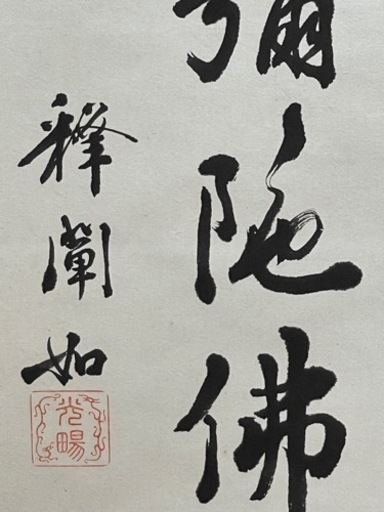 彌陀佛
釋闡如
光暢